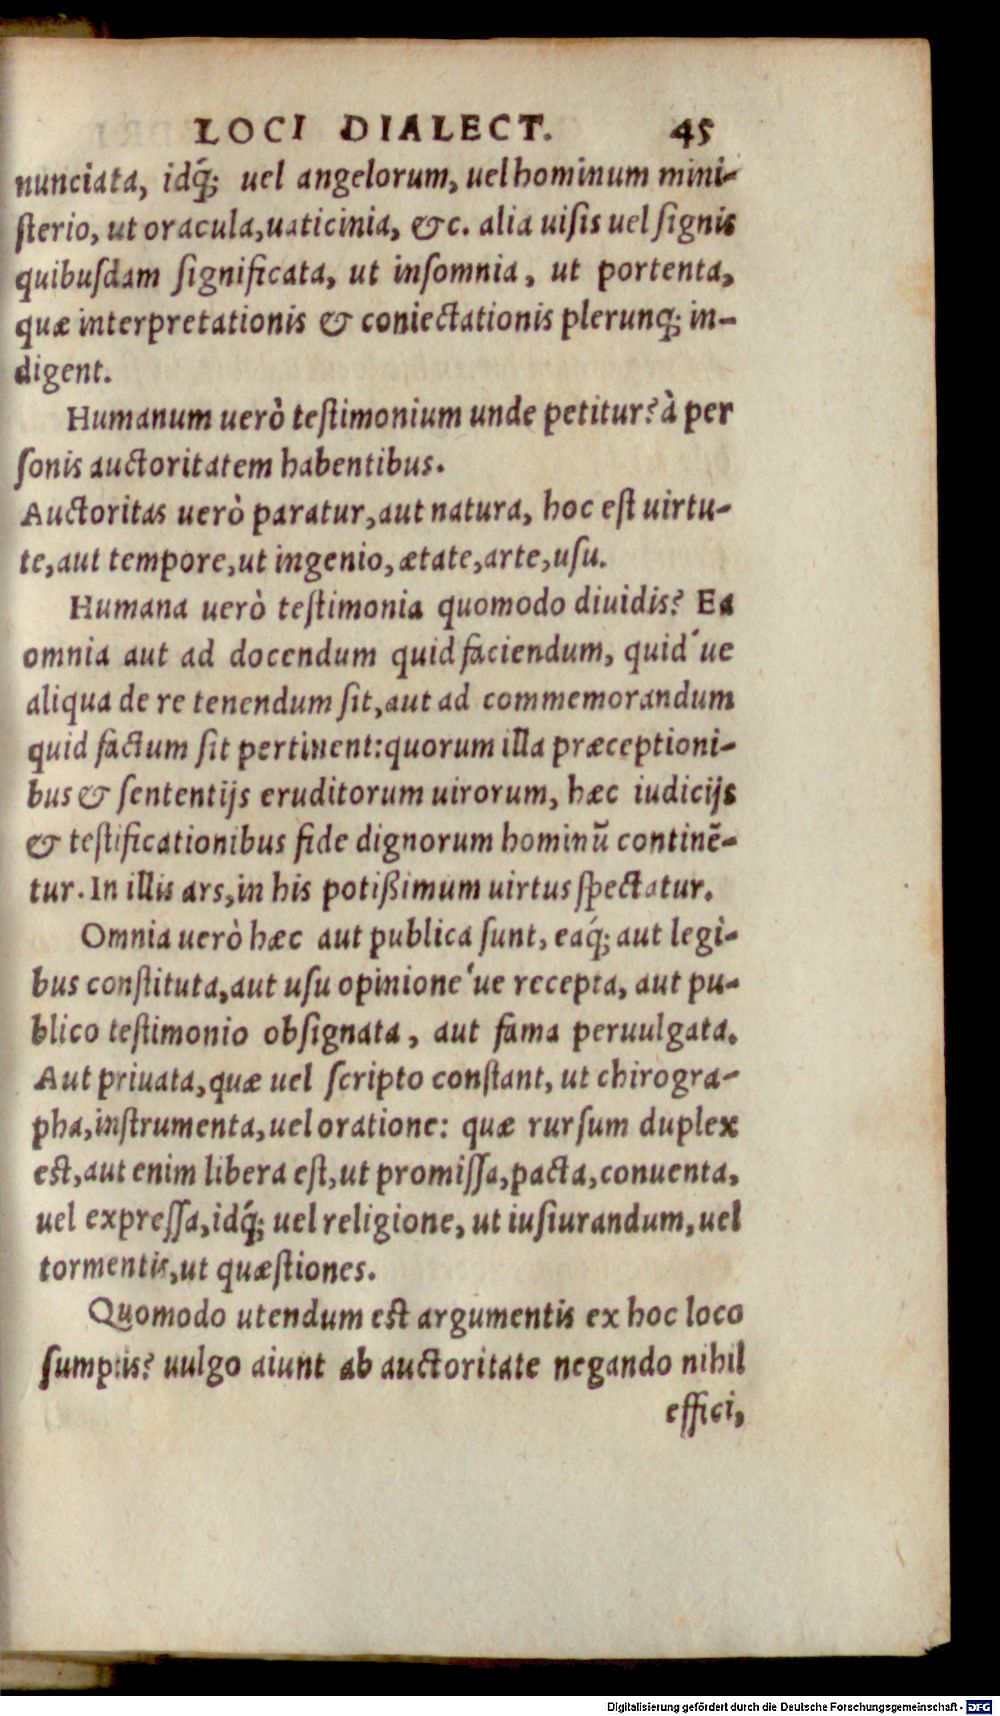 LOCI DIALECT. 45
nunciata, idq́; uel angelorum, uel hominum mini-
ſterio, ut oracula, uaticinia, &c. alia uiſis uel ſignis
quibuſdam ſignificata, ut inſomnia, ut portenta,
quæ interpretationis & coniectationis plerunq; in-
digent.
Humanum uerò teſtimonium unde petitur? à per
ſonis auctoritatem habentibus.
Auctoritas uerò paratur, aut natura, hoc eſt uirtu-
te, aut tempore, ut ingenio, ætate, arte, uſu.
Humana uerò teſtimonia quomodo diuidis? Ea
omnia aut ad docendum quid faciendum, quid'ue
aliqua de re tenendum ſit, aut ad commemorandum
quid factum ſit pertinent: quorum illa præceptioni-
bus & ſententijs eruditorum uirorum, hæc iudicijs
& teſtificationibus fide dignorum hominũ continẽ-
tur. In illis ars, in his potißimum uirtus ſpectatur.
Omnia uerò hæc aut publica ſunt, eaq́; aut legi-
bus conſtituta, aut uſu opinione'ue recepta, aut pu-
blico teſtimonio obſignata, aut fama peruulgata.
Aut priuata, quæ uel ſcripto conſtant, ut chirogra-
pha, inſtrumenta, uel oratione: quæ rurſum duplex
eſt, aut enim libera eſt, ut promiſſa, pacta, conuenta,
uel expreſſa, idq́; uel religione, ut iuſiurandum, uel
tormentis, ut quæſtiones.
Quomodo utendum eſt argumentis ex hoc loco
ſumptis? uulgo aiunt ab auctoritate negando nihil
effici,
Digitalisierung gefördert durch die Deutsche Forschungsgemeinschaft - DFG